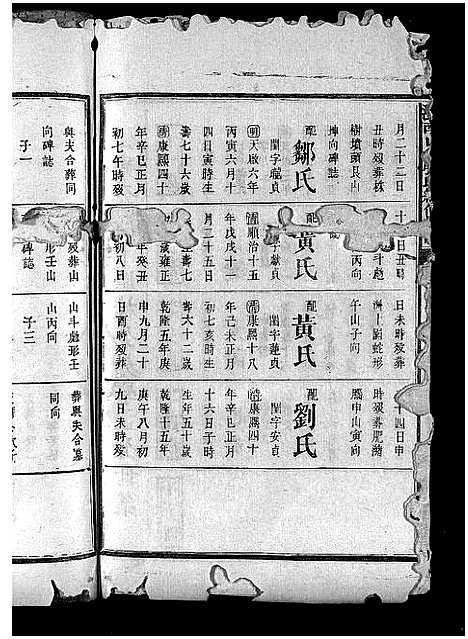 月二十二日
丑時歿葬栋
樹墳頭艮山
坤向碑誌
配鄒氏
閨字龍貞
明天啟六年
丙寅六月十
四日寅時生
壽七十六歲
康熙四十
年辛巳正月
初七午時歿
與夫合葬同
向碑誌
子一
日丑時
山斗彪
丙向
配黃氏
閨字獻貞
清順治十五
年戊戌十一
月二十五日
壽七
雍正
年癸丑
初八日
歿葬山
形壬山
碑誌
日未時歿葬
蛇形
午山子向
配黃氏
閨字蓮貞
清康熙十八
年己未正月
初七亥時生
壽六十二歲
乾隆五年庚
申九月二十
日酉時歿葬
山斗彪形壬
山丙向
子三
十四日申
時歿葬肥
申山寅向
配劉氏
閨字安貞
清康熙四十
年辛巳正月
十六日子時
生年五十歲
乾隆十五年
庚午八月初
九日未時歿
葬與夫合墓
同向